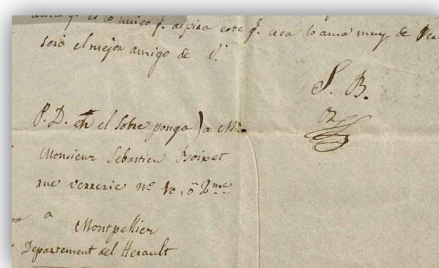 es lo unico q. aspira este q. crea lo ama muy de
será el mejor amigo de V.
S. B.
P. D. en el sobre ponga a Mr.
Monsieur Sebastien
rue verrerie nº 10, ó 2me
a
Montpellier
Departement del Herault